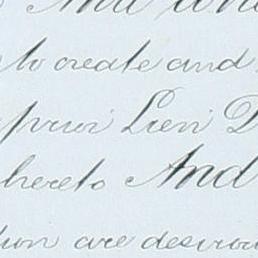 And
to create and
prior Lien
hereto And
are desirou